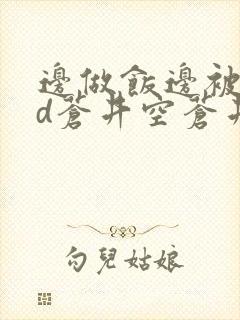 邊做飯邊被
d蒼井空蒼井
勾兒姑娘